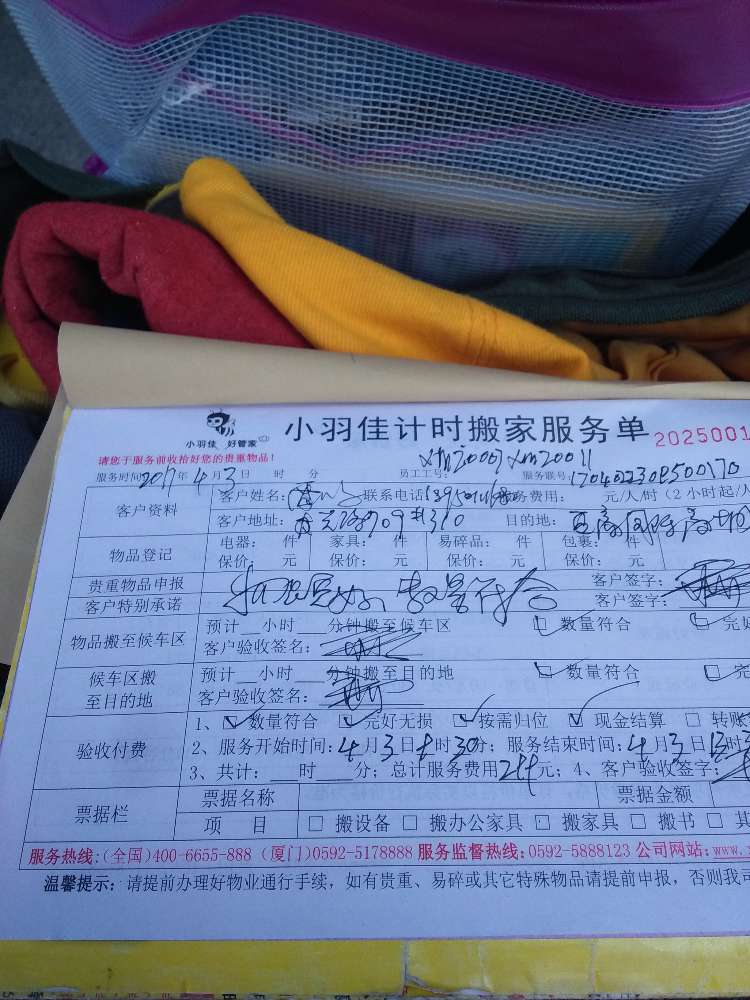 小羽佳 好管家
小羽佳计时搬家服务单
2025001
请您于服务前收拾好您的贵重物品!
xm20007 xm20011
服务时间 2017年4月3日 时 分 员工工号: 服务联号:
客户资料 客户姓名: 联系电话 服务费用: 元/人/时(2小时起/
客户地址: 709#310 目的地:
物品登记 电器: 件 家具: 件 易碎品: 件 包裹: 件
保价: 元 保价: 元 保价: 元 保价: 元
贵重物品申报 客户签字:
客户特别承诺 数量符合 客户签字:
物品搬至候车区 预计 小时 分钟搬至候车区 ☑ 数量符合 ☑ 完好
客户验收签名:
候车区搬至目的地 预计 小时 分钟搬至目的地 ☑ 数量符合 ☑ 完
客户验收签名:
验收付费 1、☑ 数量符合 ☑ 完好无损 ☑ 按需归位 ☑ 现金结算 □ 转账
2、服务开始时间: 4月3日8时30分; 服务结束时间: 4月3日
3、共计: 时 分; 总计服务费用 元; 4、客户验收签字:
票据栏 票据名称 票据金额
项 目 □ 搬设备 □ 搬办公家具 □ 搬家具 □ 搬书 □ 其
服务热线:(全国)400-6655-888 (厦门)0592-5178888 服务监督热线:0592-5888123 公司网站:www.
温馨提示: 请提前办理好物业通行手续, 如有贵重、易碎或其它特殊物品请提前申报, 否则我司